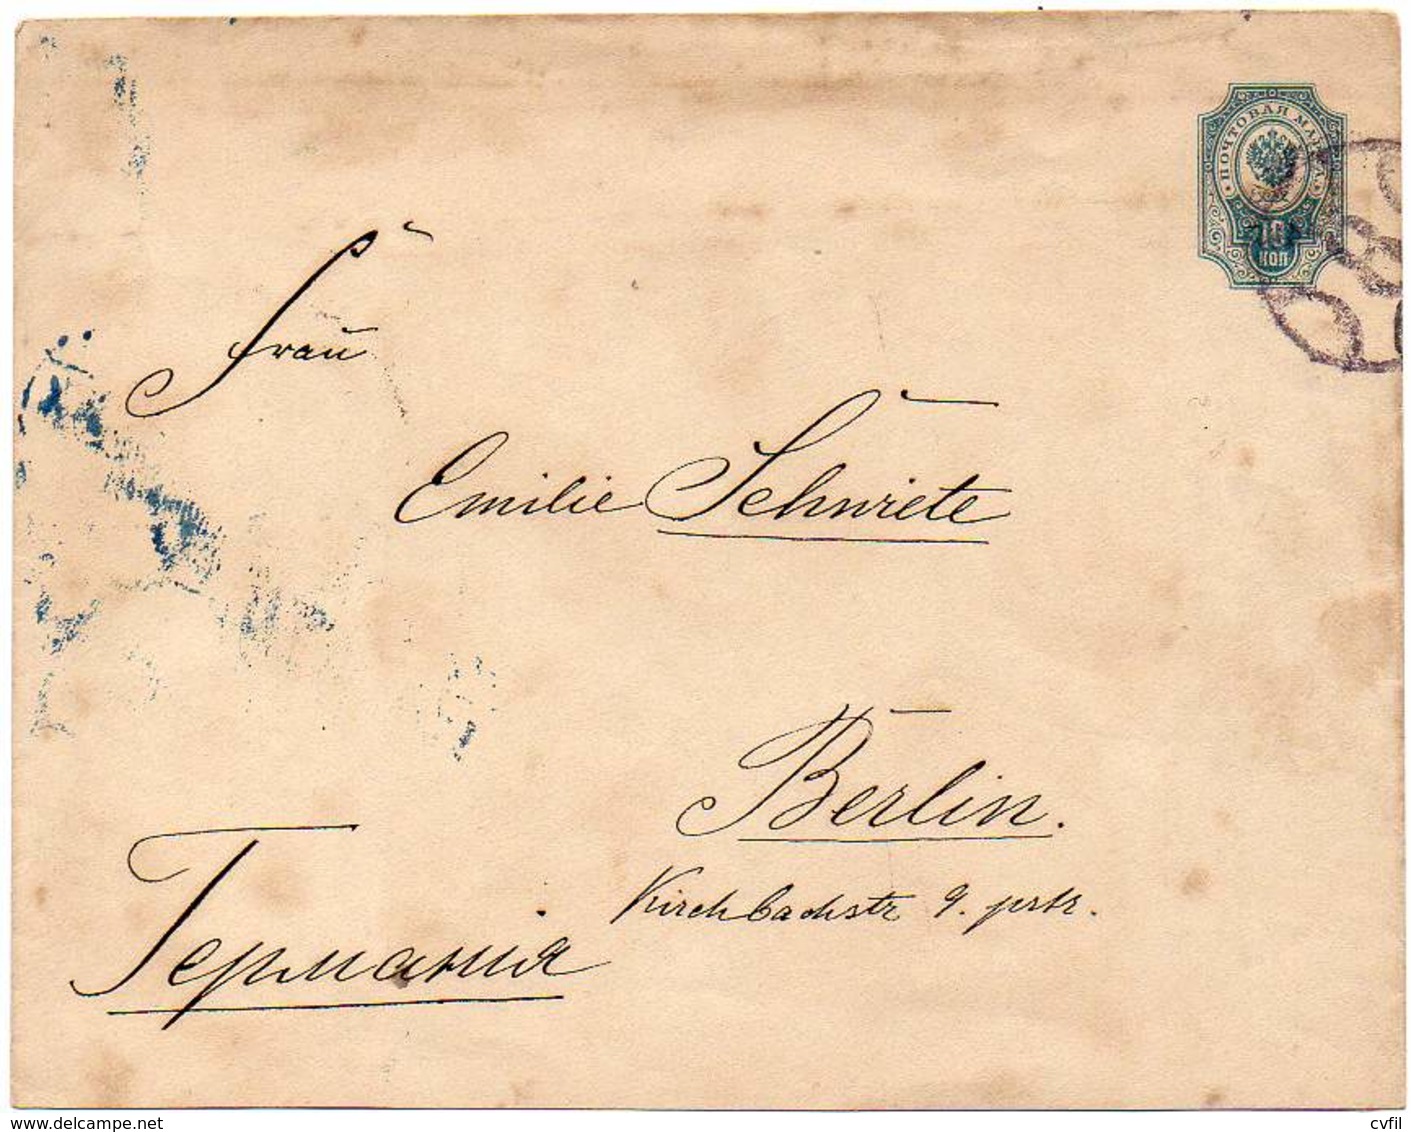 ПОЧТОВАЯ МАРКА
10
КОП
Frau
Emilie Schwiete
Berlin.
Kirchbachstr 9. prtr.
Германія
www.delcampe.net
cvfil